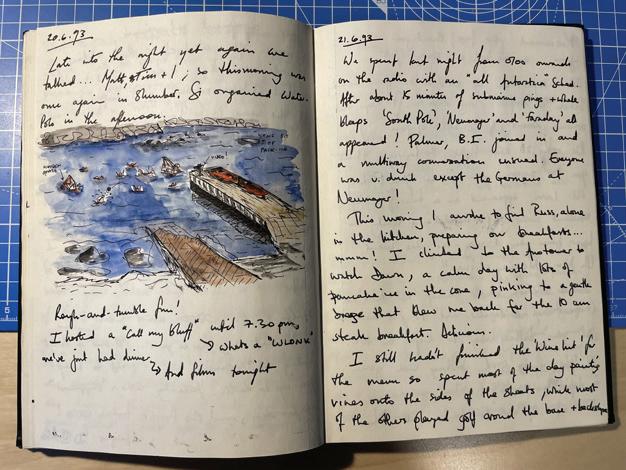 20.6.93
Late into the night yet again we
talked... Matt + 1; so this morning was
once again in slumber. Si organised Water-
Polo in the afternoon.
VIDEO!
PACK-ICE
Rough-and-tumble fun!
I hosted a "Call my Bluff" until 7.30 pm
we've just had dinner
Whats a "WLONK"
And films tonight
21.6.93
We spent last night from 0100 onwards
on the radio with an "all Antarctica" Sched.
After about 15 minutes of submarine pings + whale
bleeps 'South Pole', 'Neumayer' and 'Faraday' all
appeared! Palmer, B.I. joined in and
a multiway conversation ensued. Everyone
was v. drunk except the Germans at
Neumayer!
This morning I awoke to find Russ, alone
in the kitchen, preparing our breakfasts...
mmm! I climbed to the to
watch Dawn, a calm day with lots of
pancake ice in the cove, pinking to a gentle
breeze that blew me back for the 10 am
steak breakfast. Delicious.
I still hadn't finished the 'Wine list' for
the menu so spent most of the day painting
vines onto the sides of the sheets, while most
of the others played golf around the base +